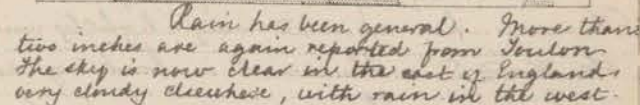 Rain has been general. More than
two inches are again reported from Toulon
The sky is now clear in the east of England
very cloudy elsewhere, with rain in the west.